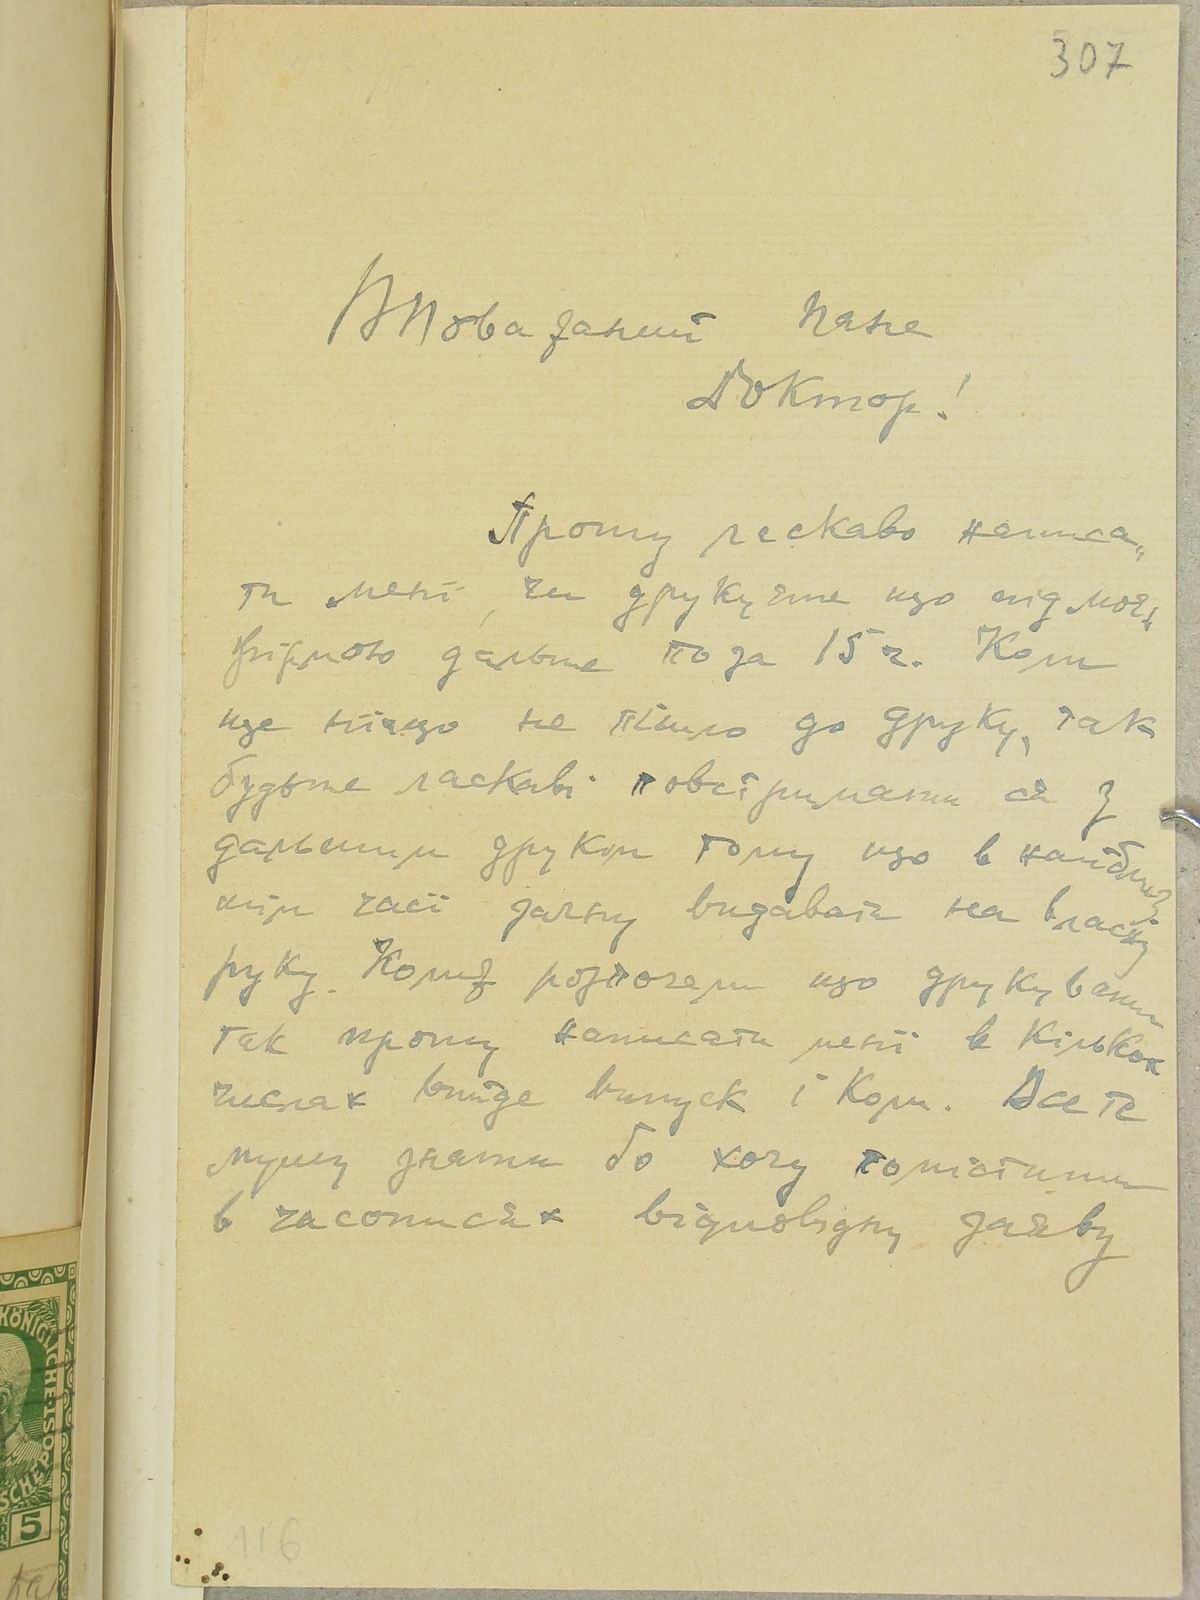 307
ВПоважаний Пане
Доктор!
Прошу ласкаво написа„
ти мені, чи друкуєте що під моєю
фірмою дальше поза 15 ч. Коли
ще нїчцо не пішло до друку, так
будьте ласкаві повстримати ся з
дальшим друком тому що в найблиз
шім часї зачну видавати на власну
руку. Колиж розпочали що друкувати
так прошу написати мені в кількох
числах вийде випуск і коли. Все те
мушу знати бо хочу помістити
в часописях відповідну заяву
116
KÖNIGLICHE POST
SCHE
5